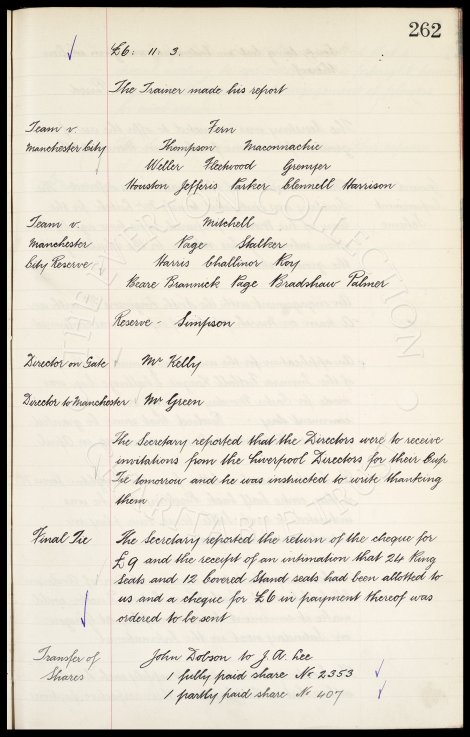 262
£6: 11: 3.
The Trainer made his report
Team v. Fern
Manchester City Thompson Maconnachie
Weller Fleetwood Grenyer
Houston Jefferis Parker Clennell Harrison
Team v. Mitchell
Manchester Page Stalker
City Reserve Harris Challinor Roy
Beare Brannick Page Bradshaw Palmer
Reserve - Simpson
Director on Gate Mr Kelly
Director to Manchester Mr Green
The Secretary reported that the Directors were to receive
invitations from the Liverpool Directors for their Cup
Tie tomorrow and he was instructed to write thanking
them
Final Tie The Secretary reported the return of the cheque for
£9 and the receipt of an intimation that 24 Ring
Seats and 12 Covered Stand seats had been allotted to
us and a cheque for £6 in payment thereof was
ordered to be sent
Transfer of John Dobson to J. A. Lee
Shares 1 fully paid share No 2353
1 partly paid share No 407
THE EVERTON COLLECTION